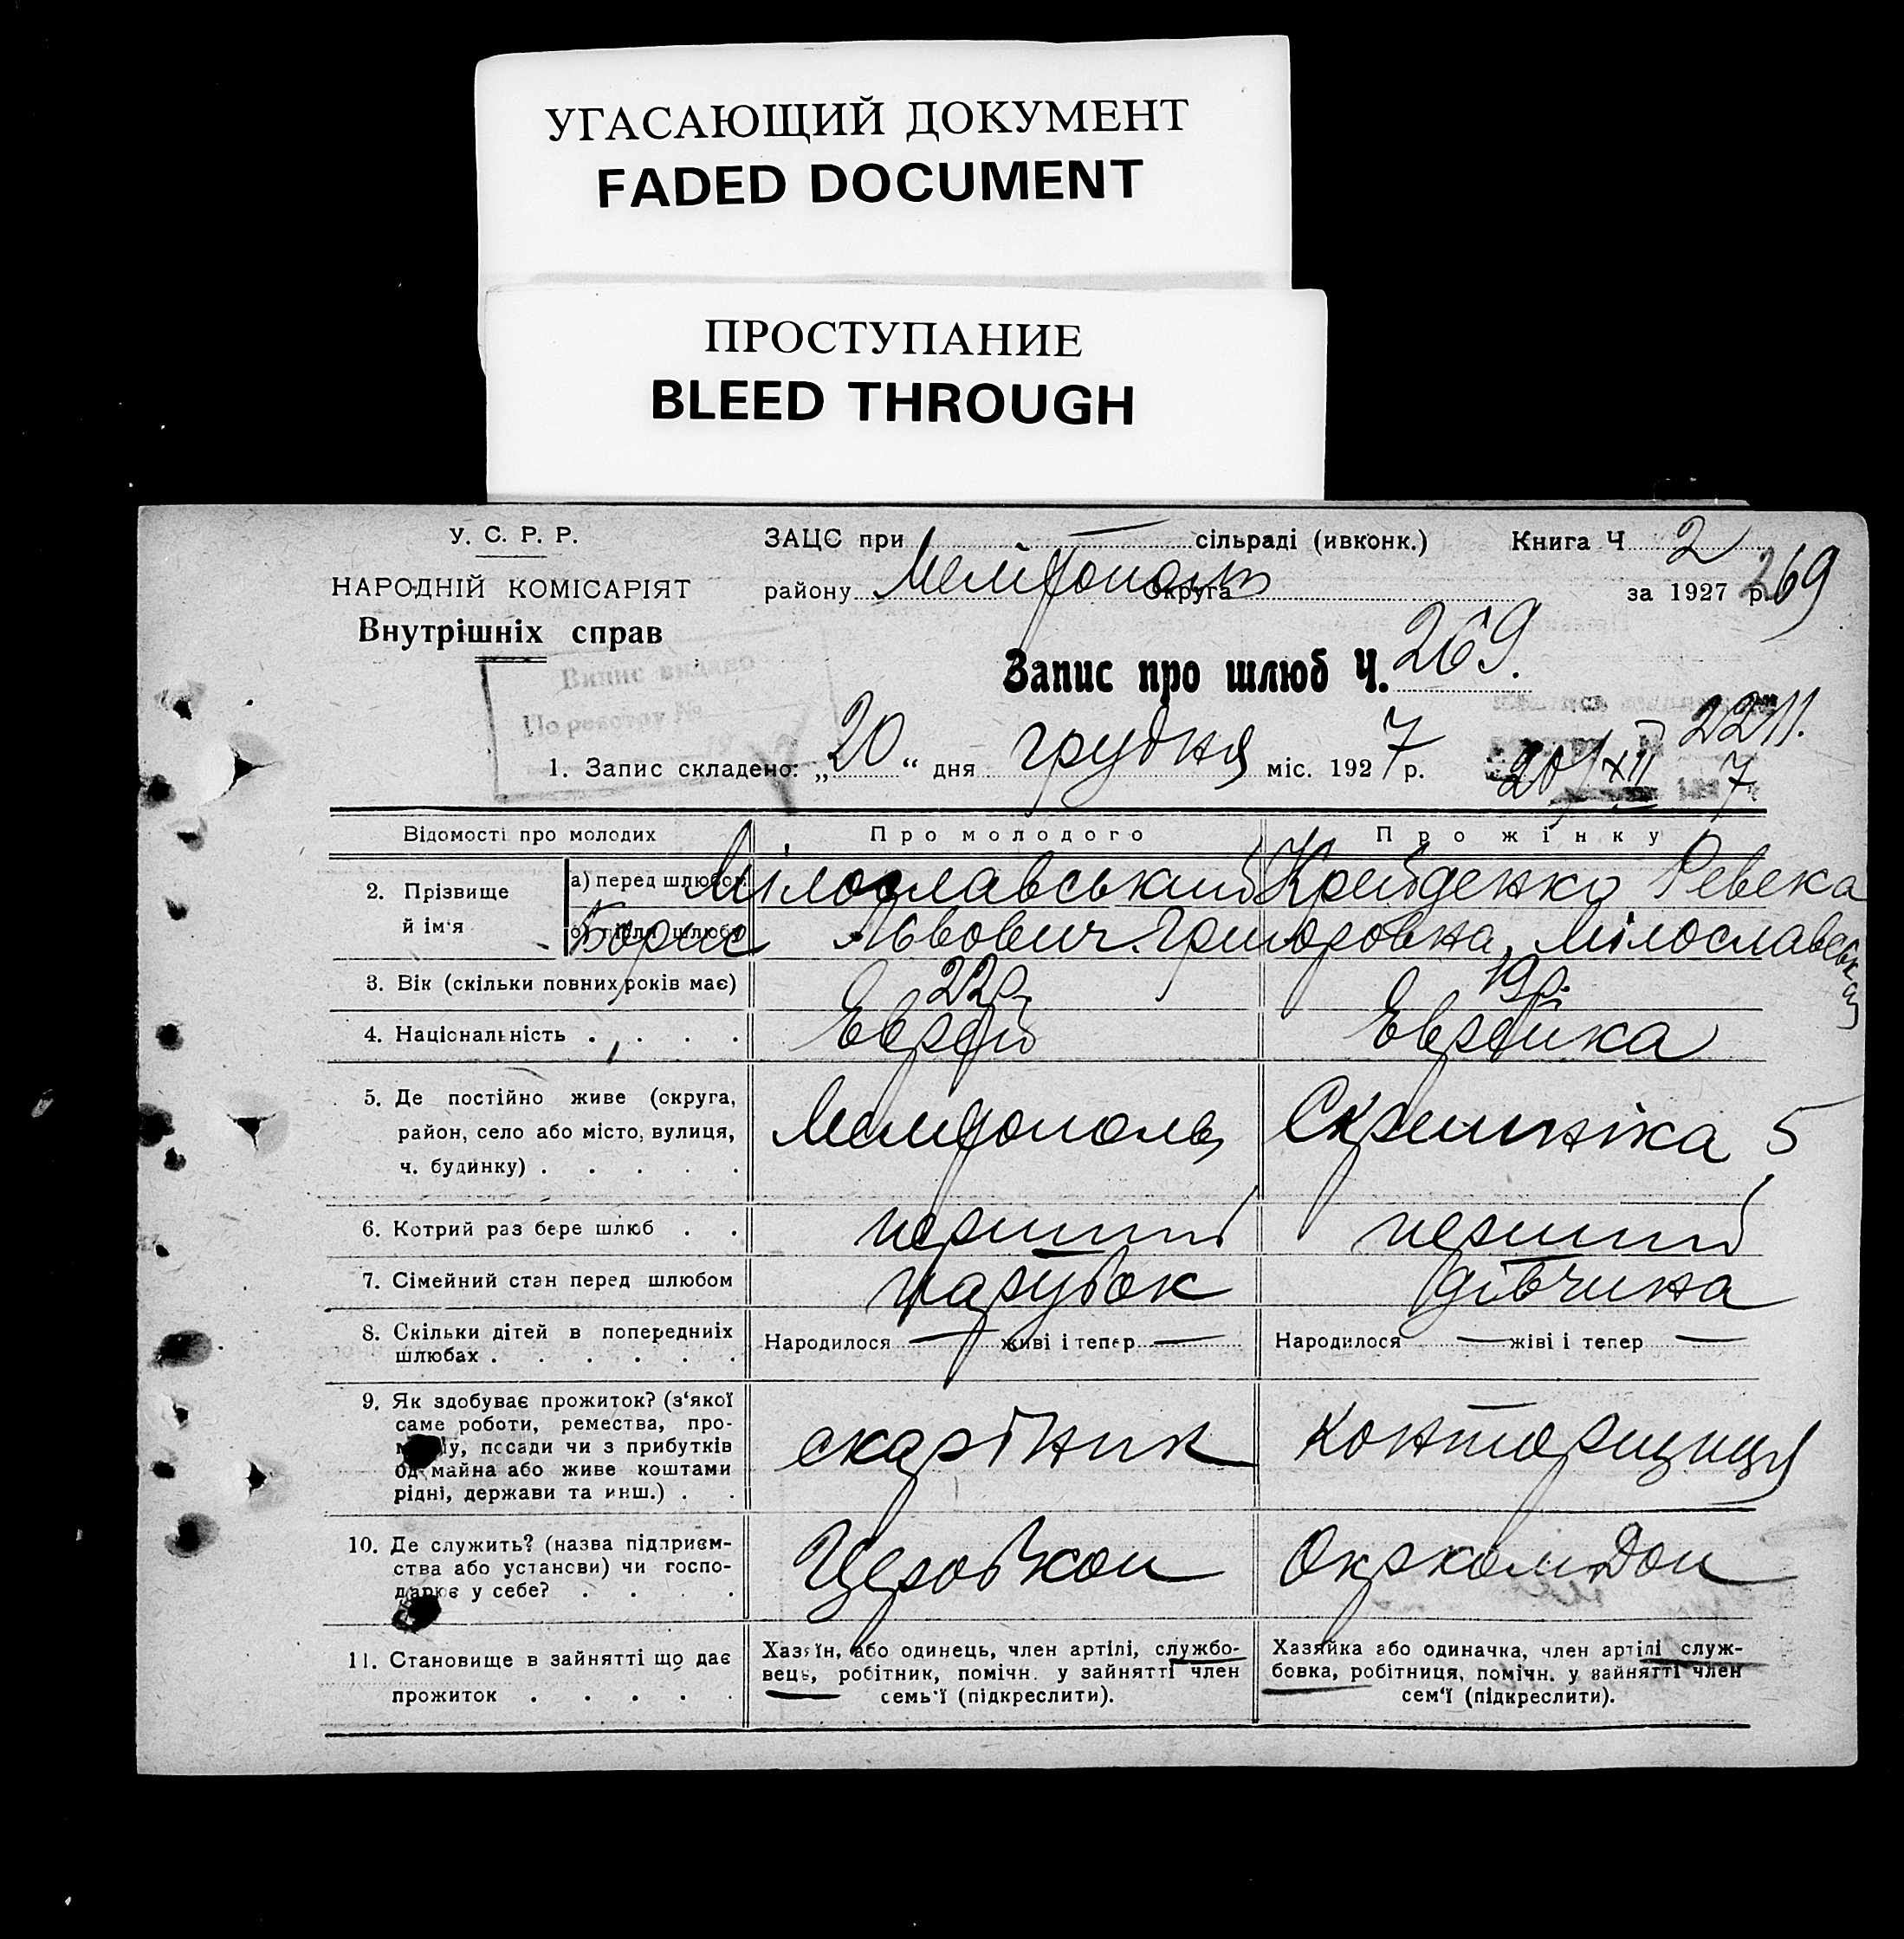 УГАСАЮЩИЙ ДОКУМЕНТ
FADED DOCUMENT
ПРОСТУПАНИЕ
BLEED THROUGH
У. С. Р. Р.
НАРОДНІЙ КОМІСАРІЯТ
Внутрішніх справ
ЗАЦС при — сільраді (ивконк.) Книга Ч 2
району Мелітополь Округа за 1927 р. 269
Випис видано
По реєстру №
Запис про шлюб Ч. 269.
2211.
1. Запис складено: „20“ дня грудня міс. 1927 р.
20/XII 7
Відомості про молодих Про молодого Про жінку
2. Прізвище й ім'я
а) перед шлюбом Мілославський Крейденко Ревека
б) після шлюбу Борис Львович. Григоровна, Мілославська
3. Вік (скільки повних років має) 22р. 19р.
4. Національність . . . . Еврей Еврейка
5. Де постійно живе (округа,
район, село або місто, вулиця,
ч. будинку) . . . . .
Мелітополь Скрипніка 5
6. Котрий раз бере шлюб . . перший перший
7. Сімейний стан перед шлюбом парубок дівчина
8. Скільки дітей в попередниіх
шлюбах . . . . . .
Народилося — живі і тепер — Народилося — жіві і тепер —
9. Як здобуває прожиток? (з'якої
саме роботи, ремества, про-
у, посади чи з прибутків
од майна або живе коштами
рідні, держави та инш.) . .
скарбник конторщиця
10. Де служить? (назва підприєм-
ства або установи) чи госпо-
дарює у себе? . . . .
Церобкоп
11. Становище в зайнятті що дає
прожиток . . . . .
Хазяїн, або одинець, член артілі, службо-
вець, робітник, помічн. у зайнятті член
семь'ї (підкреслити).
Хазяйка або одиначка, член артілі служ-
бовка, робітниця, помічн. у зайнятті член
сем'ї (підкреслити).